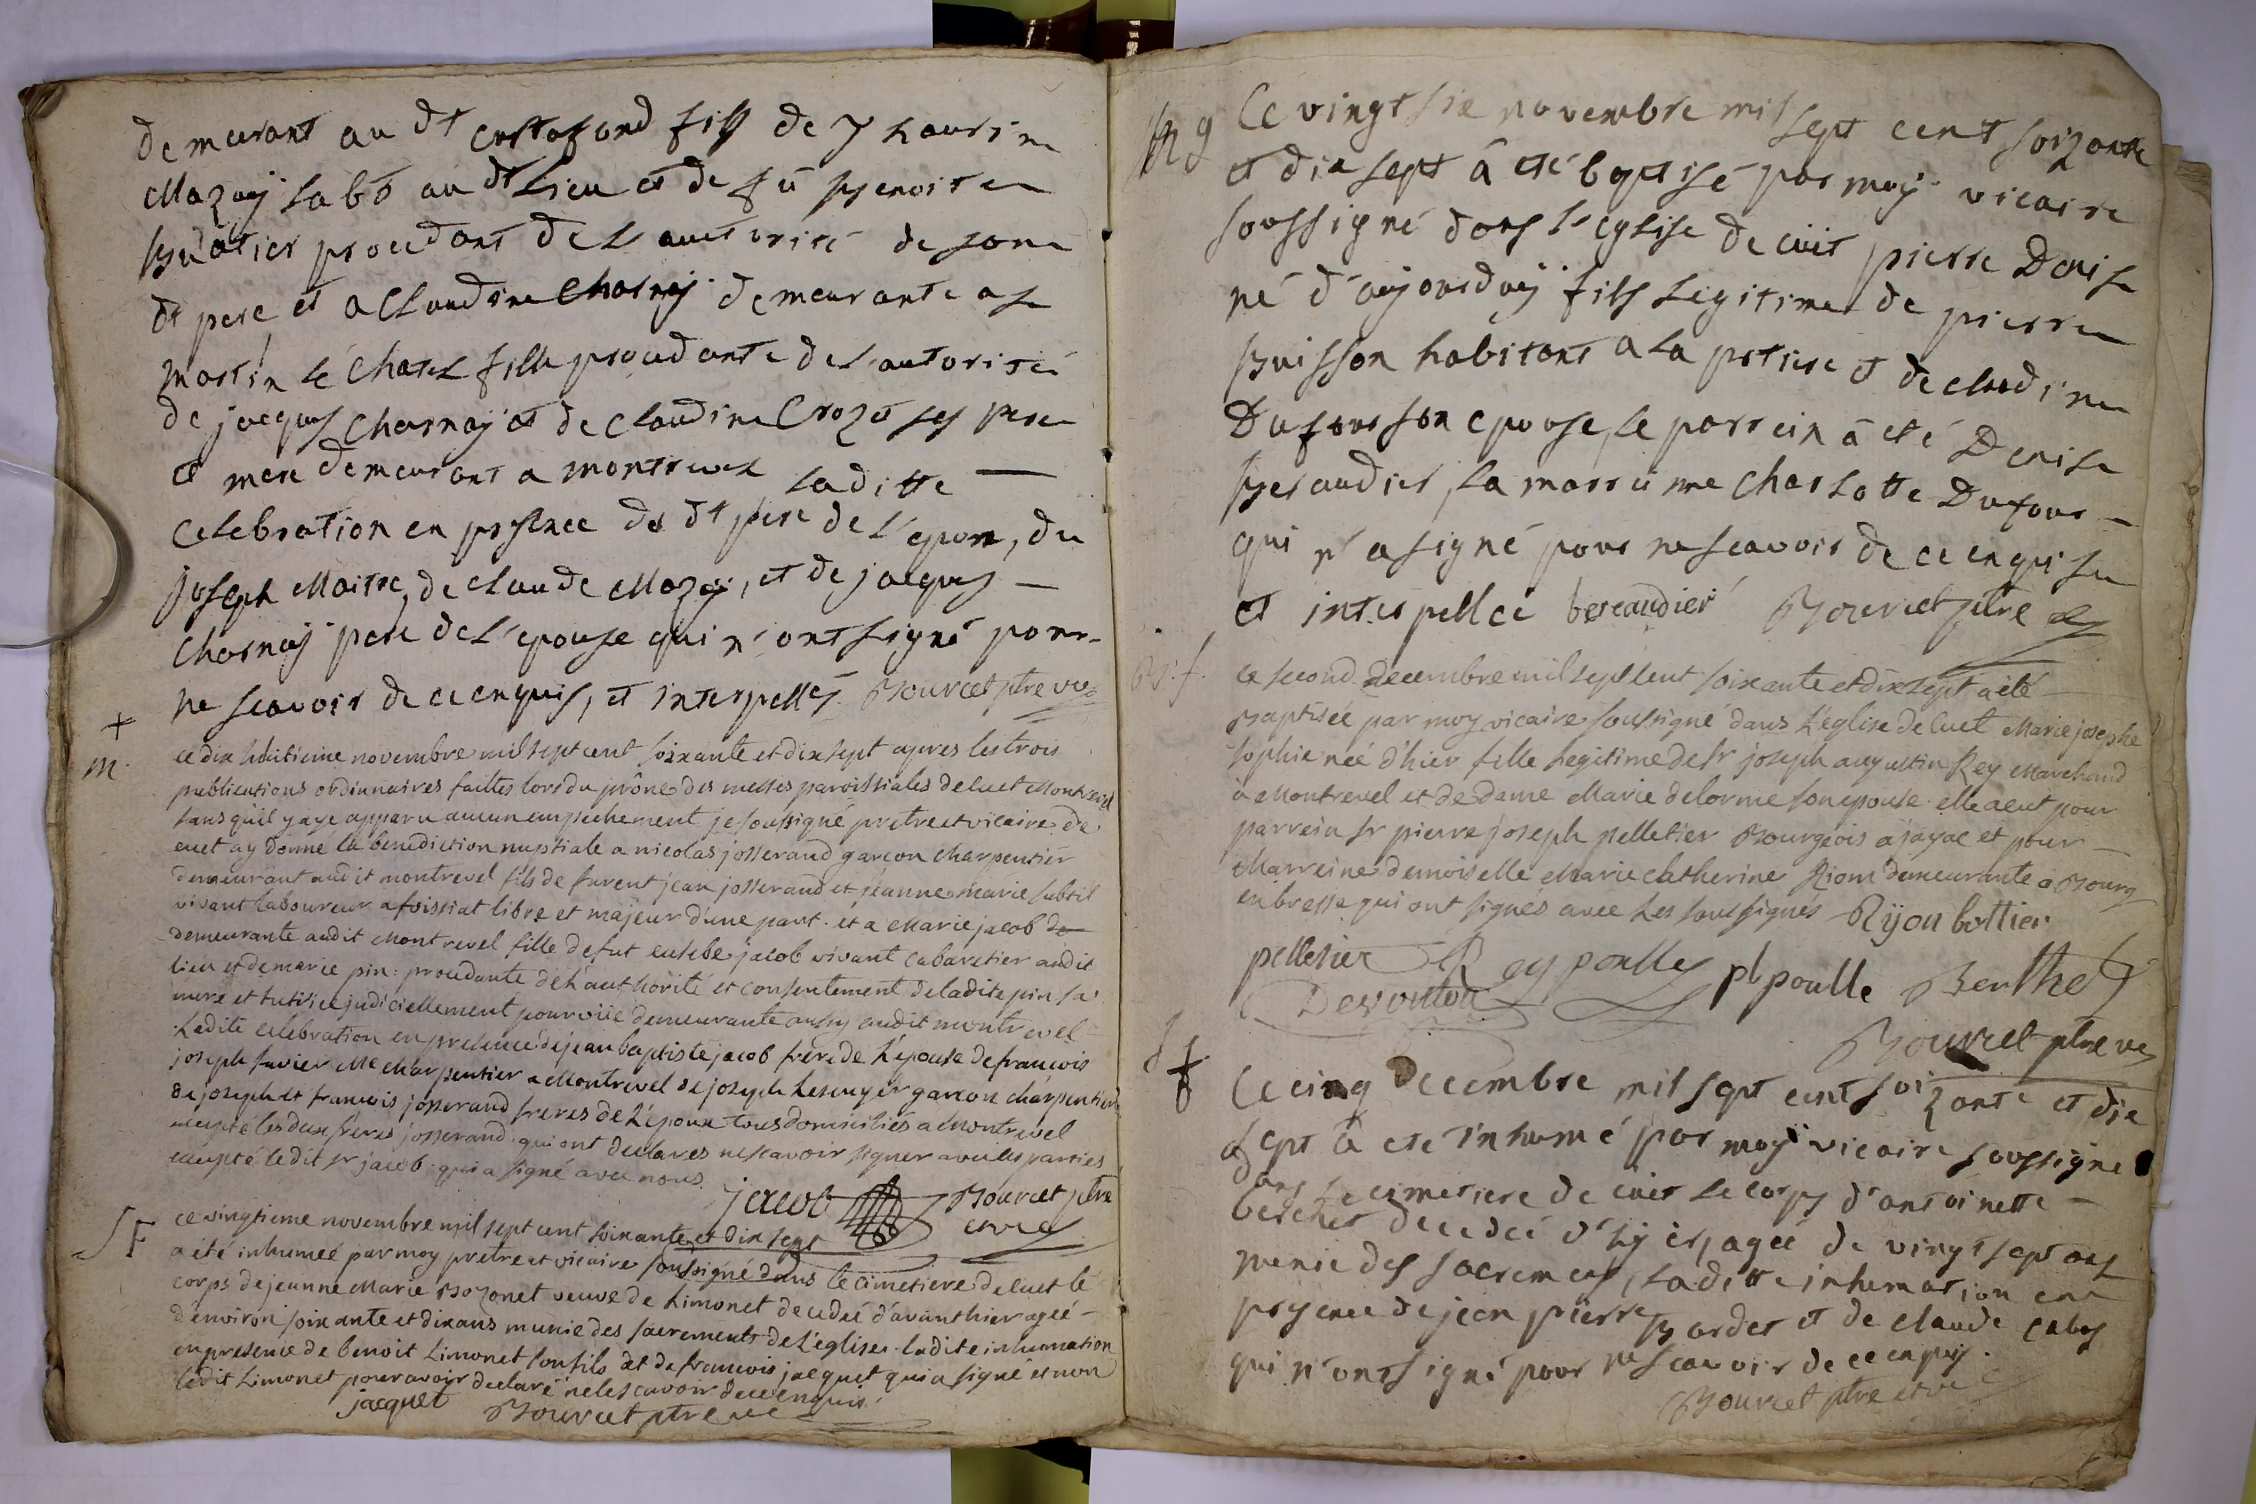 demeurant au dt Crestafond fils de Thaurin
Mazuy labr au dt lieu et de fü Benoite
Buatier procedant de l'auctorité de son
dt pere et a Claudine Charnay demeurante a St
Martin le Chatel fille procedante de l'autorité
de jacques Charnaÿ et de Claudine Crozet ses pere
et mere demeurant a Montrevel laditte
celebration en presence du dt pere de l'epoux, du
joseph Maitre, de claude Mazuy, et de jacques
Charnaÿ pere de l'epouse qui n'ont signé pour
ne scavoir de ce enquis, et interpellés Bourcet ptre vic
+
m
ce dix huitieme novembre mil sept cent soixante et dix sept apres les trois
publications ordinnaires faittes lors du prône des messes paroissiales de cuet Montrevel
sans qu'il y aye apparu aucun empechement je soussigné pretre et vicaire de
cuet ay donné la benediction nuptiale a nicolas josserand garcon charpentier
demeurant audit montrevel fils de furent jean josserand et jeanne marie subtil
vivant laboureur a foissiat libre et majeur d'une part. et a Marie jacob de
demeurante audit Montrevel fille de fut eusebe jacob vivant cabaretier audit
lieu et de marie pin: procedante de l'authorité et consentement de ladite pin sa
mere et tutrice judiciellement pourvüe demeurante aussy audit montrevel
Ladite celebration en presence de jean baptiste jacob frere de l'epouse de francois
joseph Savier Me charpentier a Montrevel de joseph Lescuyer garcon charpentier
de joseph et francois josserand freres de l'epoux tous domiciliés a Montrevel
excepté les deux freres josserand. qui ont declarés ne scavoir signer avec les parties
excepté ledit sr jacob. qui a signé avec nous.
jacob Bourcet ptre
et vic
S F
ce vingtieme novembre mil sept cent soixante et dix sept
a été inhumeé par moy pretre et vicaire soussigné dans le cimetiere de cuet le
corps de jeanne Marie Bozonet veuve de Limonet decedée d'avant hier ageé
d'environ soixante et dix ans munie des sacrements de l'eglise. ladite inhumation
en presence de benoit Limonet son fils et de francois jacquet qui a signé et non
ledit Limonet pour avoir declaré ne le scavoir de ce enquis.
jacquet Bourcet ptre vic
B g
Ce vingt six novembre mil sept cent soizante
et dix sept â eté baptisé par moÿ vicaire
soussigné dans l'eglise de cüet pierre Denise
né d'aujourduÿ fils legitime de pierre
Buisson habitant a la potiere et de claudine
Dufour son epouse, le parrein â eté Denise
Beraudier, la marreinne Charlotte Dufour
qui n'a signé pour ne scavoir de ce enquise
et interpelleé beraudier Bourcet ptre
B. f.
ce second decembre mil sept cent soixante et dix sept a été
Baptisée par moy vicaire soussigné dans l'eglise de cuet Marie josephe
sophie neé d'hier fille legitime de sr joseph augustin Rey Marchand
à Montrevel et de dame Marie delorme son epouse. elle a eut pour
parrein sr pierre joseph pelletier Bourgeois a jayac et pour
Marreine demoiselle Marie Catherine Riom demeurante a Bourg
en bresse qui ont signés avec les soussignés Rijon bottier
pelletier Rey poulle pl poulle Berthet
Desvoutor
Bourcet ptre vic
S f
Ce cinq Decembre mil sept cent soizante et dix
sept â eté inhumé par moÿ vicaire soussigné
dans le cimetiere de cüet le corps d'antoinette
bercher decedeé d'hÿer, ageé de vingt sept ans
munie des sacremens, laditte inhumation en
presence de jean pierre Bardet et de claude cabas
qui n'ont signé pour ne scavoir de ce enquis.
Bourcet ptre et vic